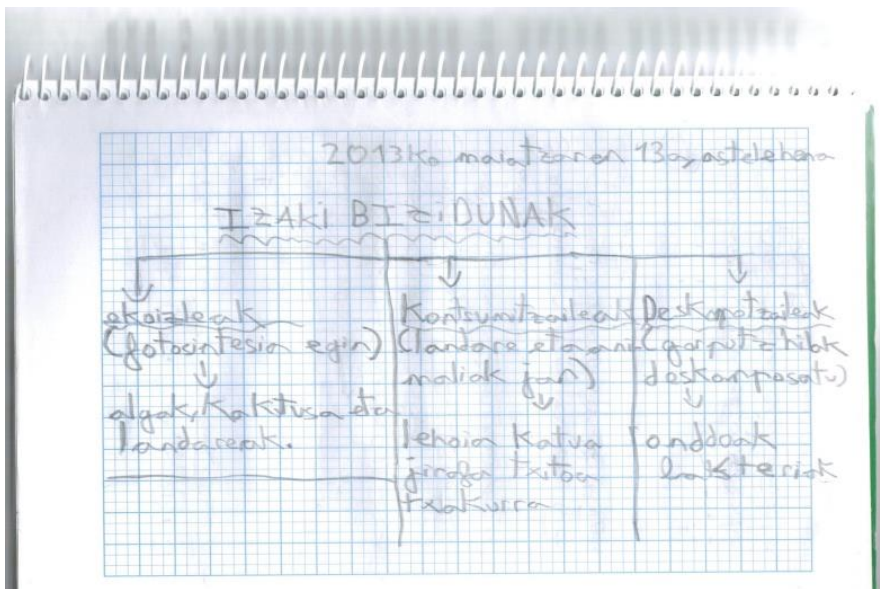 2013ko maiatzaren 13a, astelehena
IZAKI BIZIDUNAK
ekoizleak
(fotosintesia egin)
algak, kaktusa eta
landareak.
Kontsumitzaileak
(landare eta ani
maliak jan)
lehoia katua
jirafa txitoa
txakurra
Deskonpotzaileak
(gorputz hilok
deskonposatu)
onddoak
bakteriak